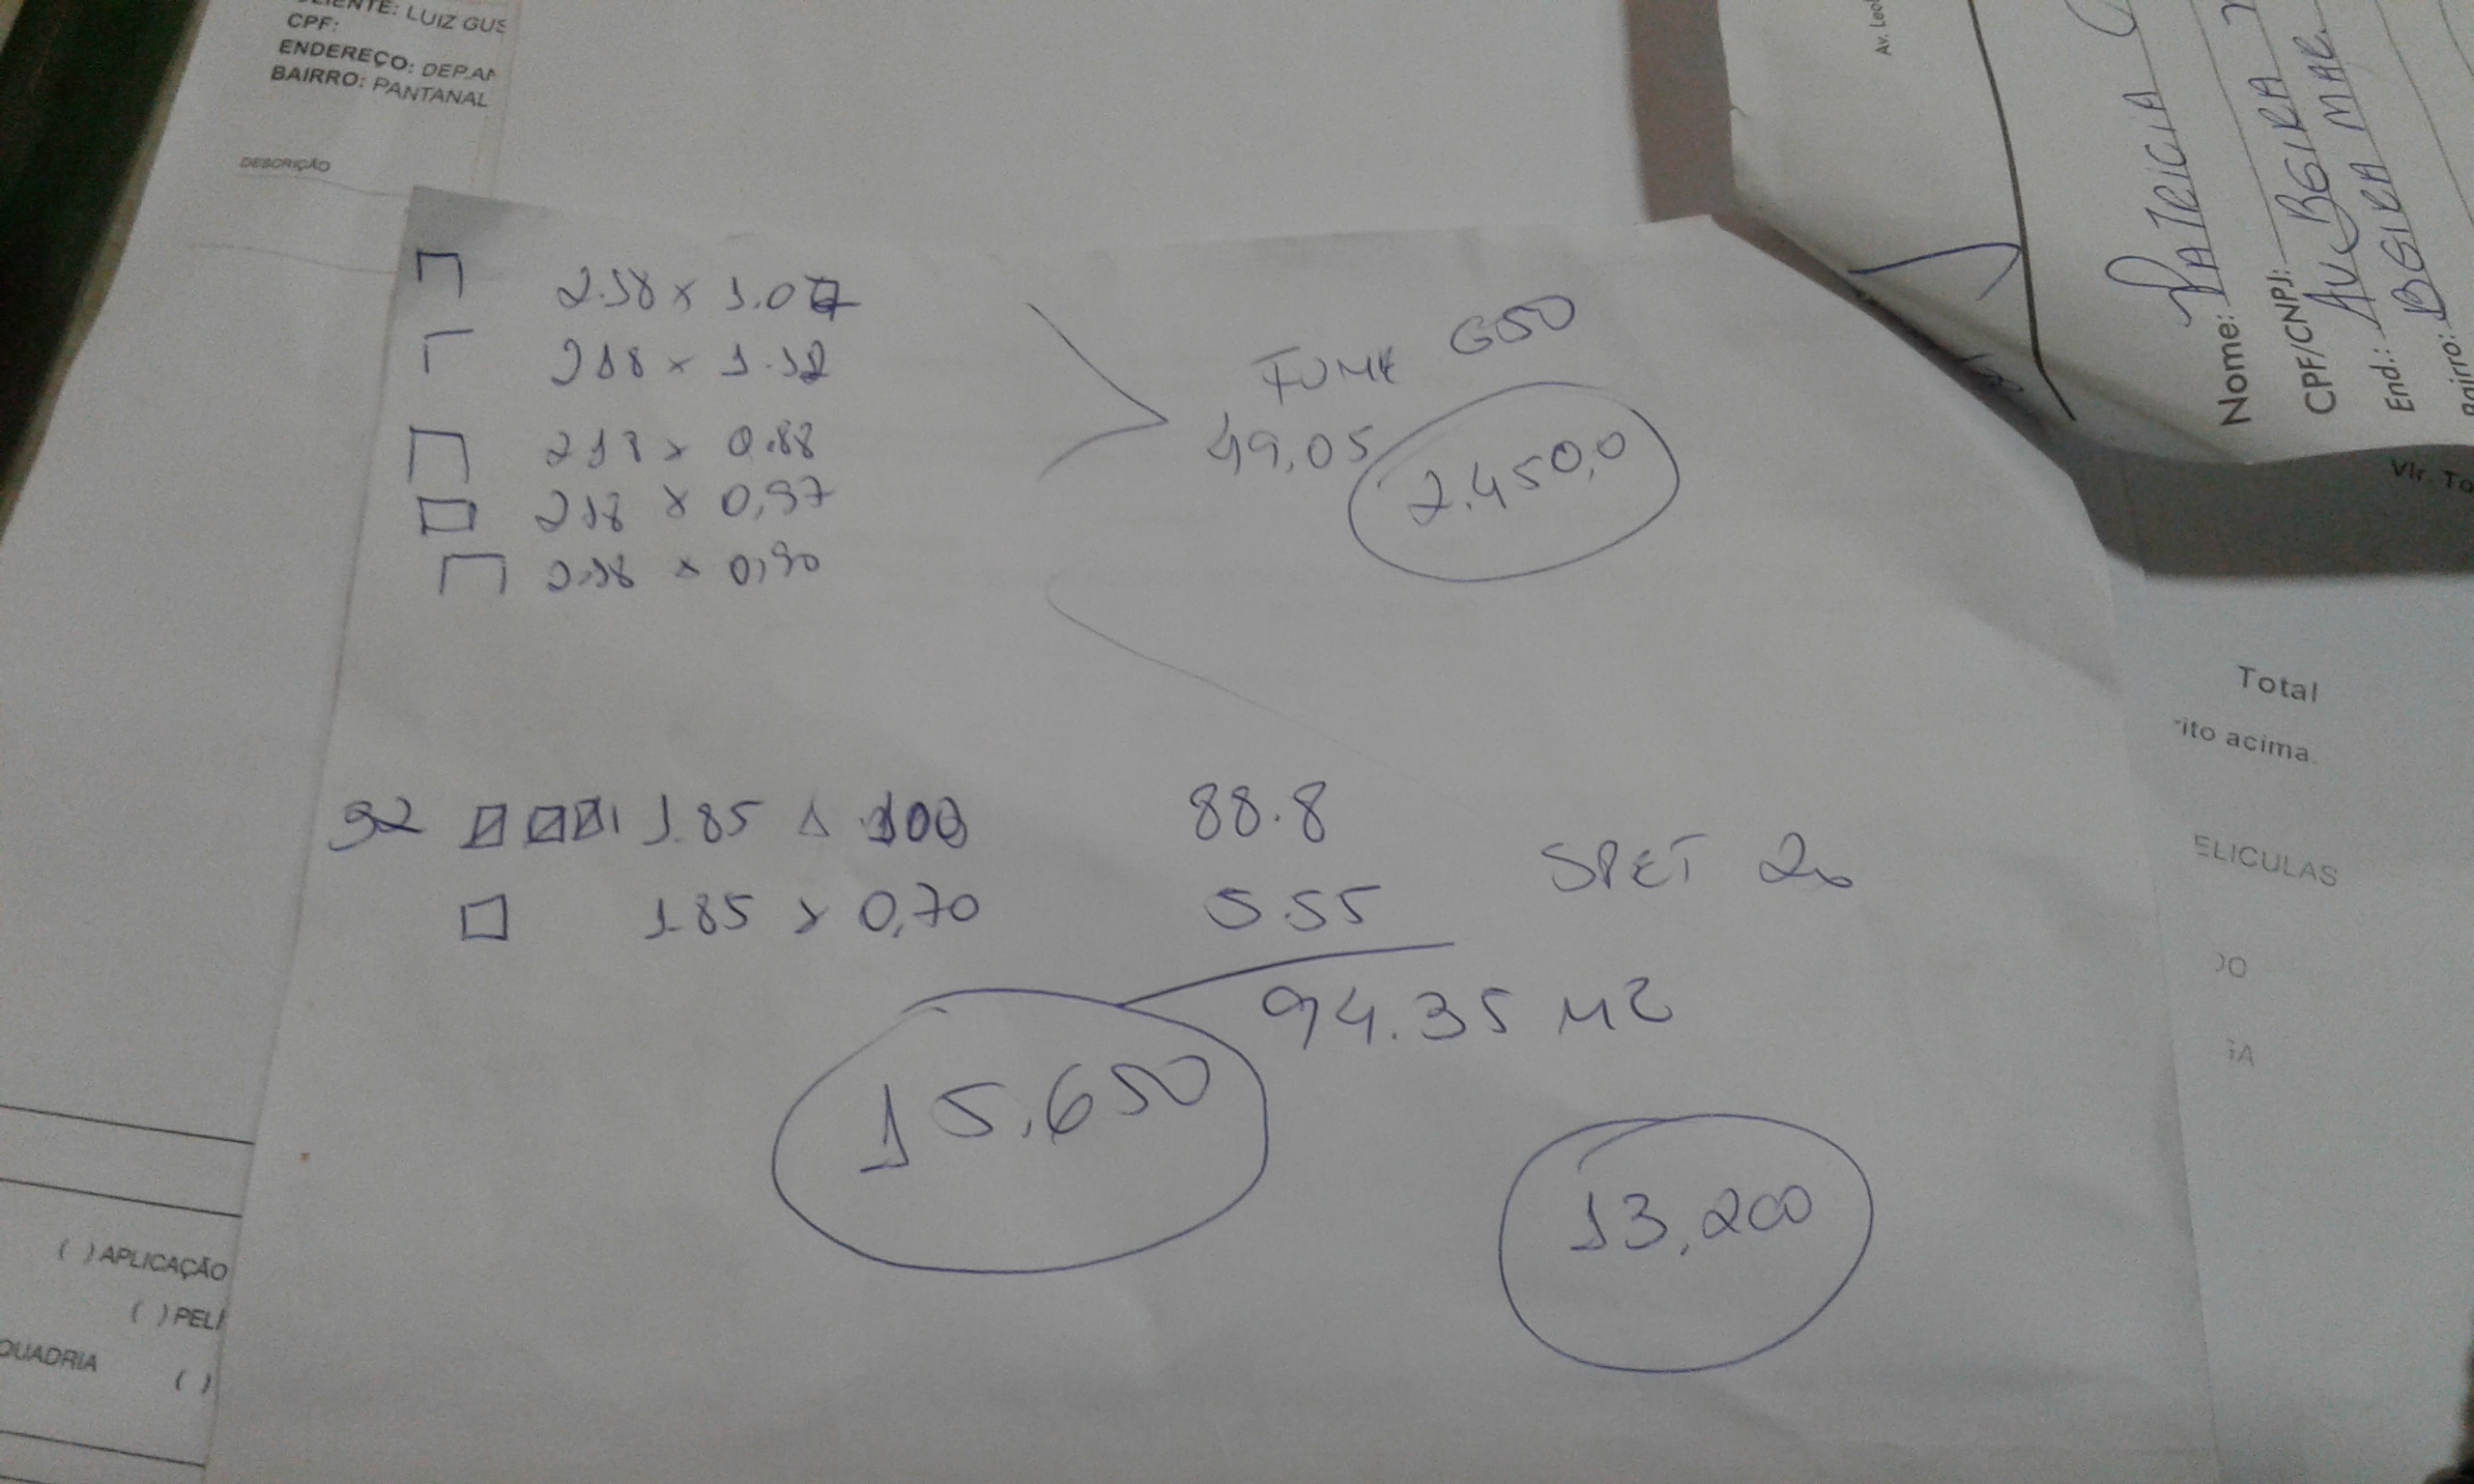 CLIENTE: LUIZ GUS
CPF:
ENDEREÇO: DEP.AN
BAIRRO: PANTANAL
DESCRIÇÃO
2.18 x 1.07
218 x 1.12
218 x 0.88
218 x 0,97
2.18 x 0,90
FUME G50
49,05
2.450,0
32 1.85 x 100
1.85 x 0,70
88.8
5.55
SPET 20
94.35 M2
15,650
13,200
( ) APLICAÇÃO
( ) PELI
QUADRIA ( )
Av. Leo
Nome: PATRICIA
CPF/CNPJ:
End.: AV BEIRA MAR
Bairro: BEIRA MAR
Vlr. To
Total
rito acima.
ELICULAS